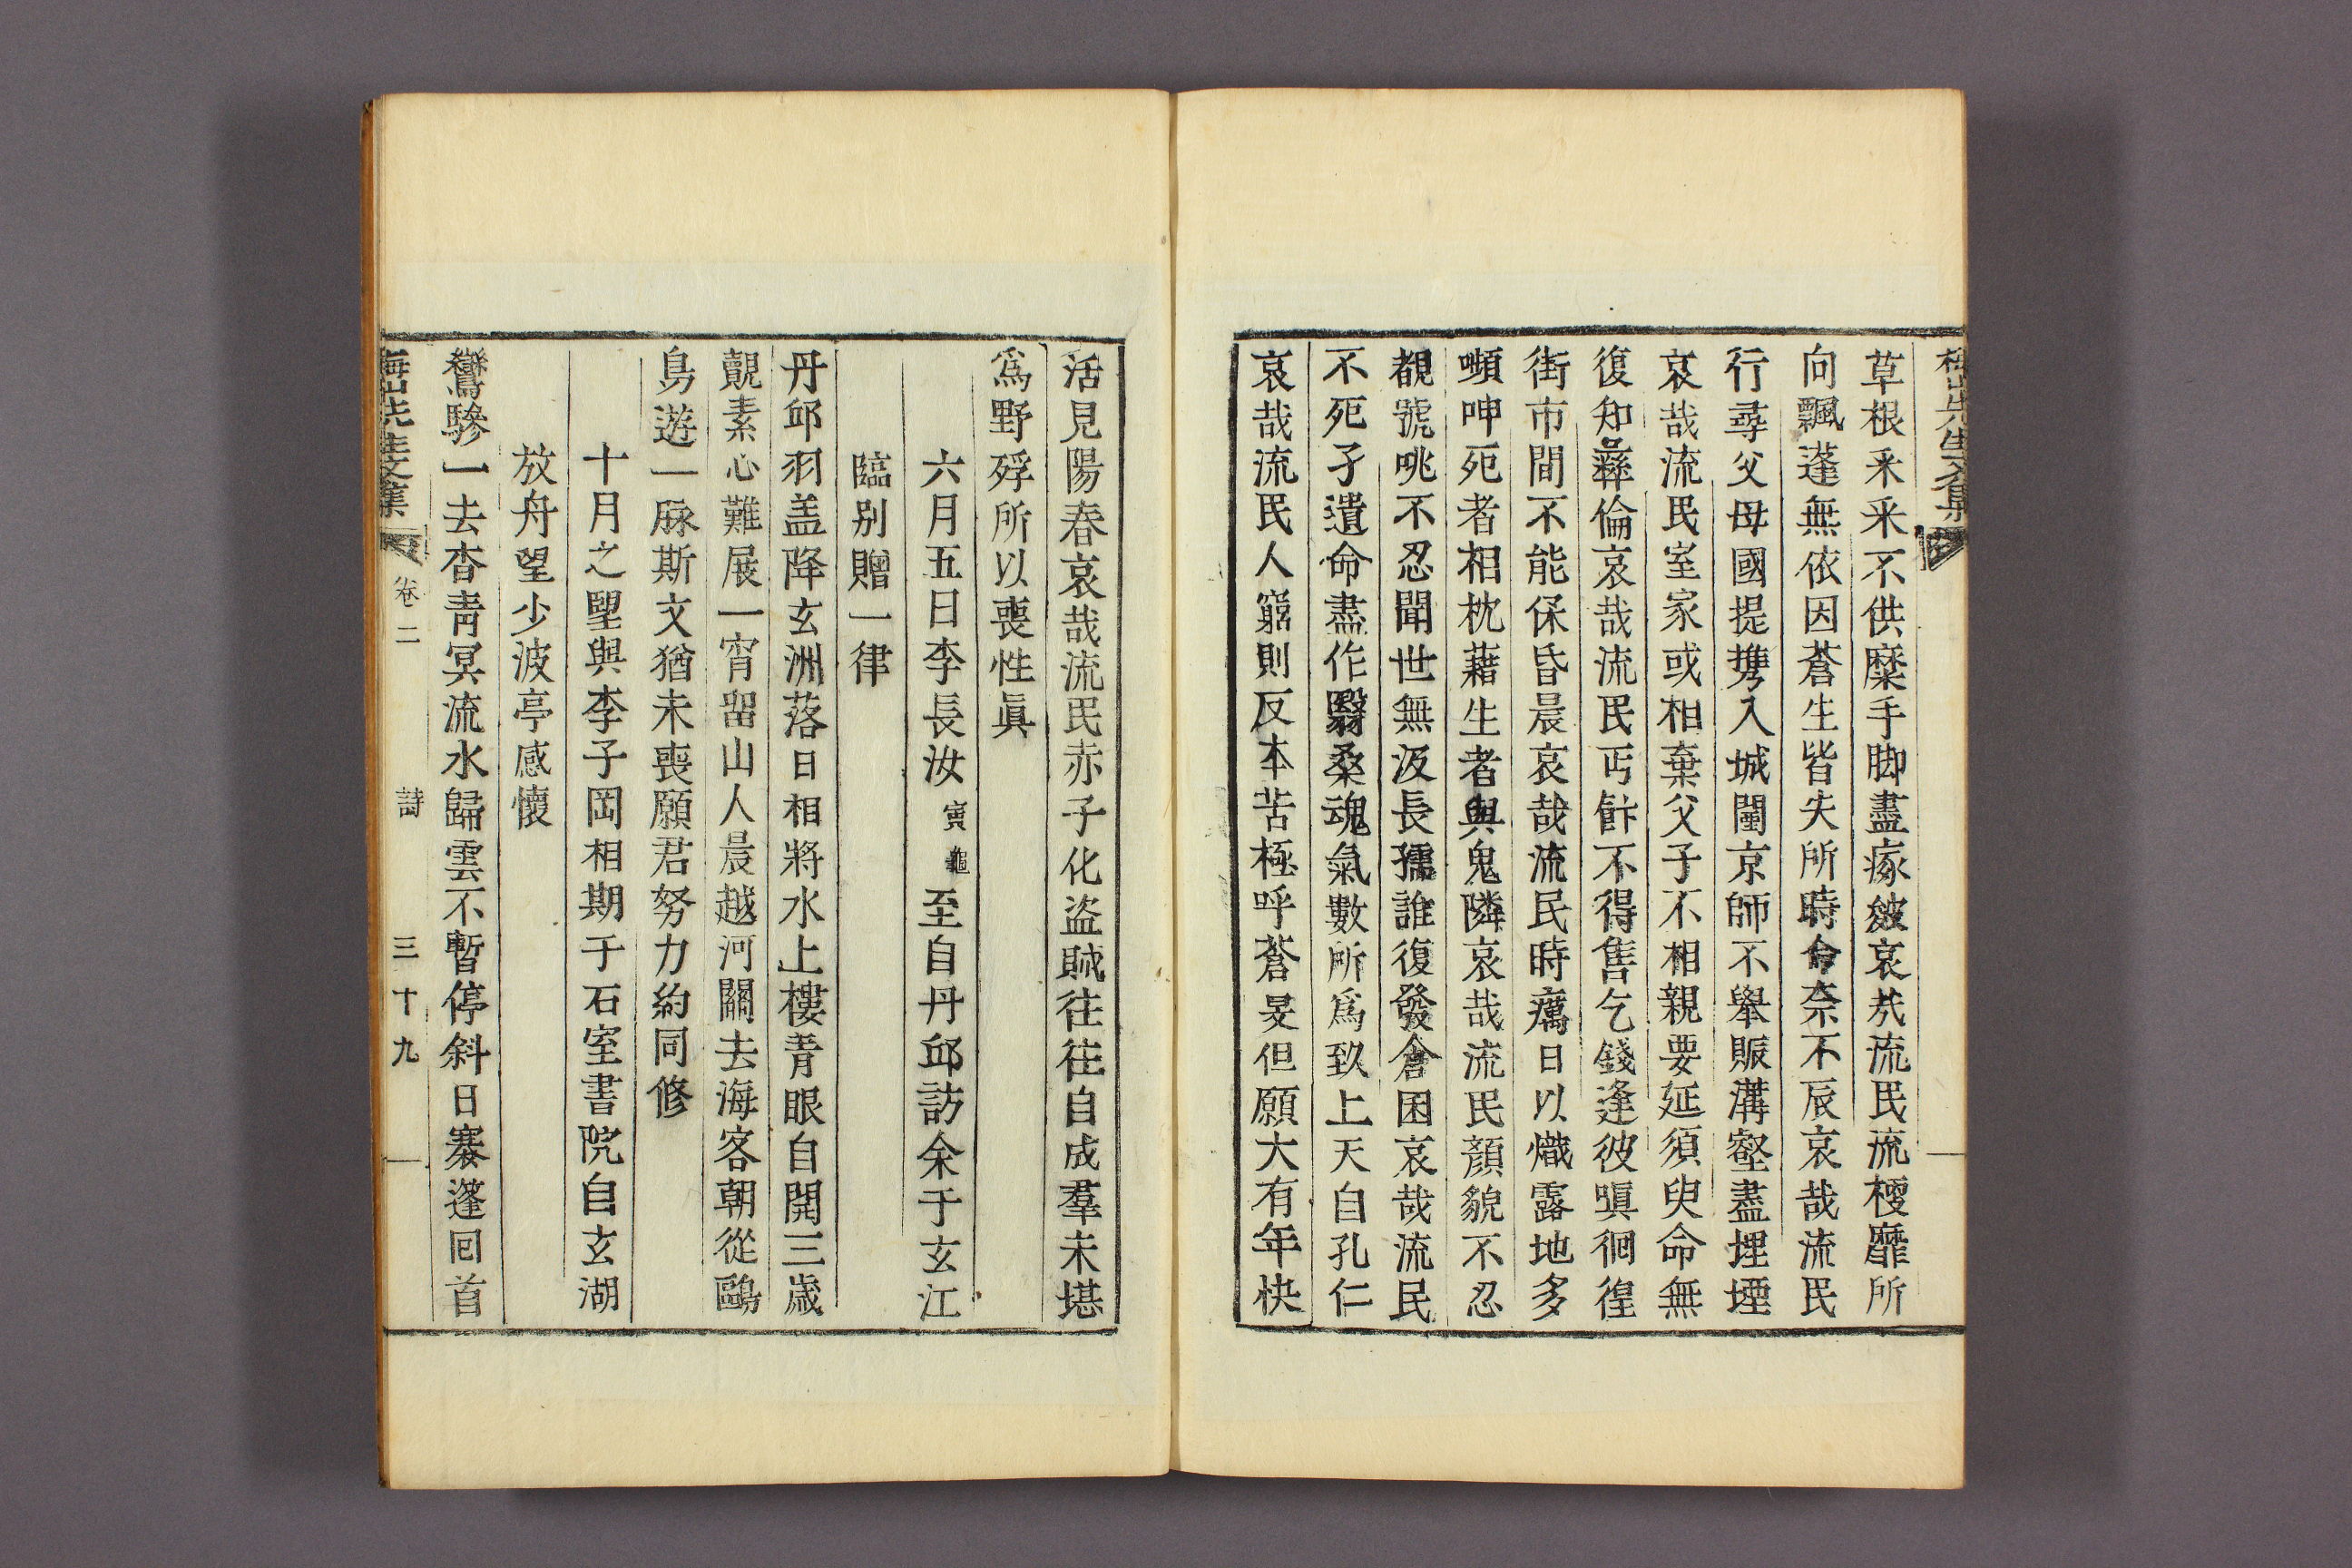 梅山先生文集
草根采采不供糜手脚盡瘃皴哀㦲流民流稷靡所
向飄蓬無依因蒼生皆失所時命奈不辰哀哉流民
行尋父母國提携入城闉京師不舉賑溝壑盡埋堙
哀哉流民室家或相棄父子不相親要延須臾命無
復知彛倫哀哉流民丐飰不得售乞錢逢彼嗔徊徨
街市間不能保昏晨哀哉流民時癘日以熾露地多
嚬呻死者相枕藉生者與鬼隣哀哉流民顏貌不忍
覩號咷不忍聞世無汲長孺誰復發倉囷哀哉流民
不死孑遺命盡作翳桑魂氣數所爲致上天自孔仁
哀哉流民人窮則反本苦極呼蒼旻但願大有年快
活見陽春哀哉流民赤子化盜賊往往自成羣未堪
爲野殍所以喪性眞
六月五日李長汝寅龜至自丹邱訪余于玄江
臨别贈一律
丹邱羽盖降玄洲落日相將水上樓靑眼自開三歲
覿素心難展一宵留山人晨越河關去海客朝從鷗
鳥遊一脉斯文猶未喪願君努力約同修
十月之朢與李子岡相期于石室書院自玄湖
放舟望少波亭感懷
鸞驂一去杳靑冥流水歸雲不暫停斜日寨蓬回首
梅山先生文集 卷二 詩 三十九